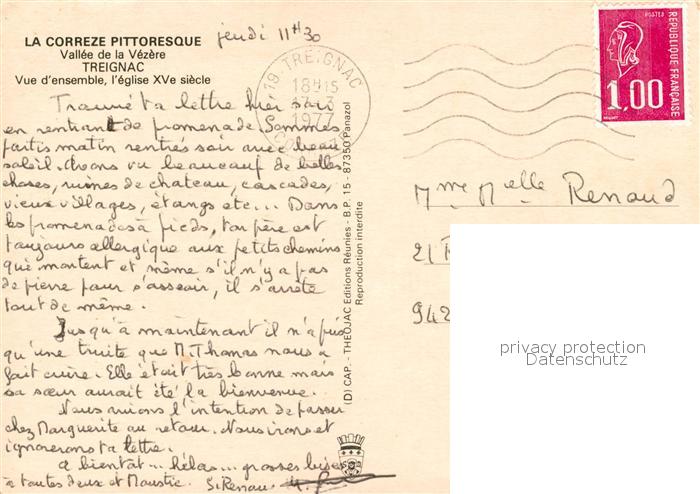 LA CORREZE PITTORESQUE
Vallée de la Vézère
TREIGNAC
Vue d'ensemble, l'église XVe siècle
jeudi 11H30
Trouvé ta lettre hier soir
en rentrant de promenade. Sommes
partis matin rentrés soir avec beau
soleil. Avons vu beaucoup de belles
choses, ruines de chateau, cascades,
vieux villages, étangs etc... Dans
les promenades à pieds, ton père est
toujours allergique aux petits chemins
qui montent et même s'il n'y a pas
de pierre pour s'asseoir, il s'arrête
tout de même.
Jusqu'à maintenant il n'a pris
qu'une truite que M. Thomas nous a
fait cuire. Elle était très bonne mais
sa sœur aurait été la bienvenue.
Nous avions l'intention de passer
chez Marguerite au retour. Nous irons et
ignorerons ta lettre.
A bientôt... hélas... grosses bises
à toutes deux et Moustie. S. Renau
19 - TREIGNAC
18H15
1977
CORREZE
(D) CAP. - THEOJAC Editions Réunies - B.P. 15 - 87350 Panazol
Reproduction interdite
POSTES
REPUBLIQUE FRANÇAISE
1,00
Mme Melle Renaud
21
942
privacy protection
Datenschutz